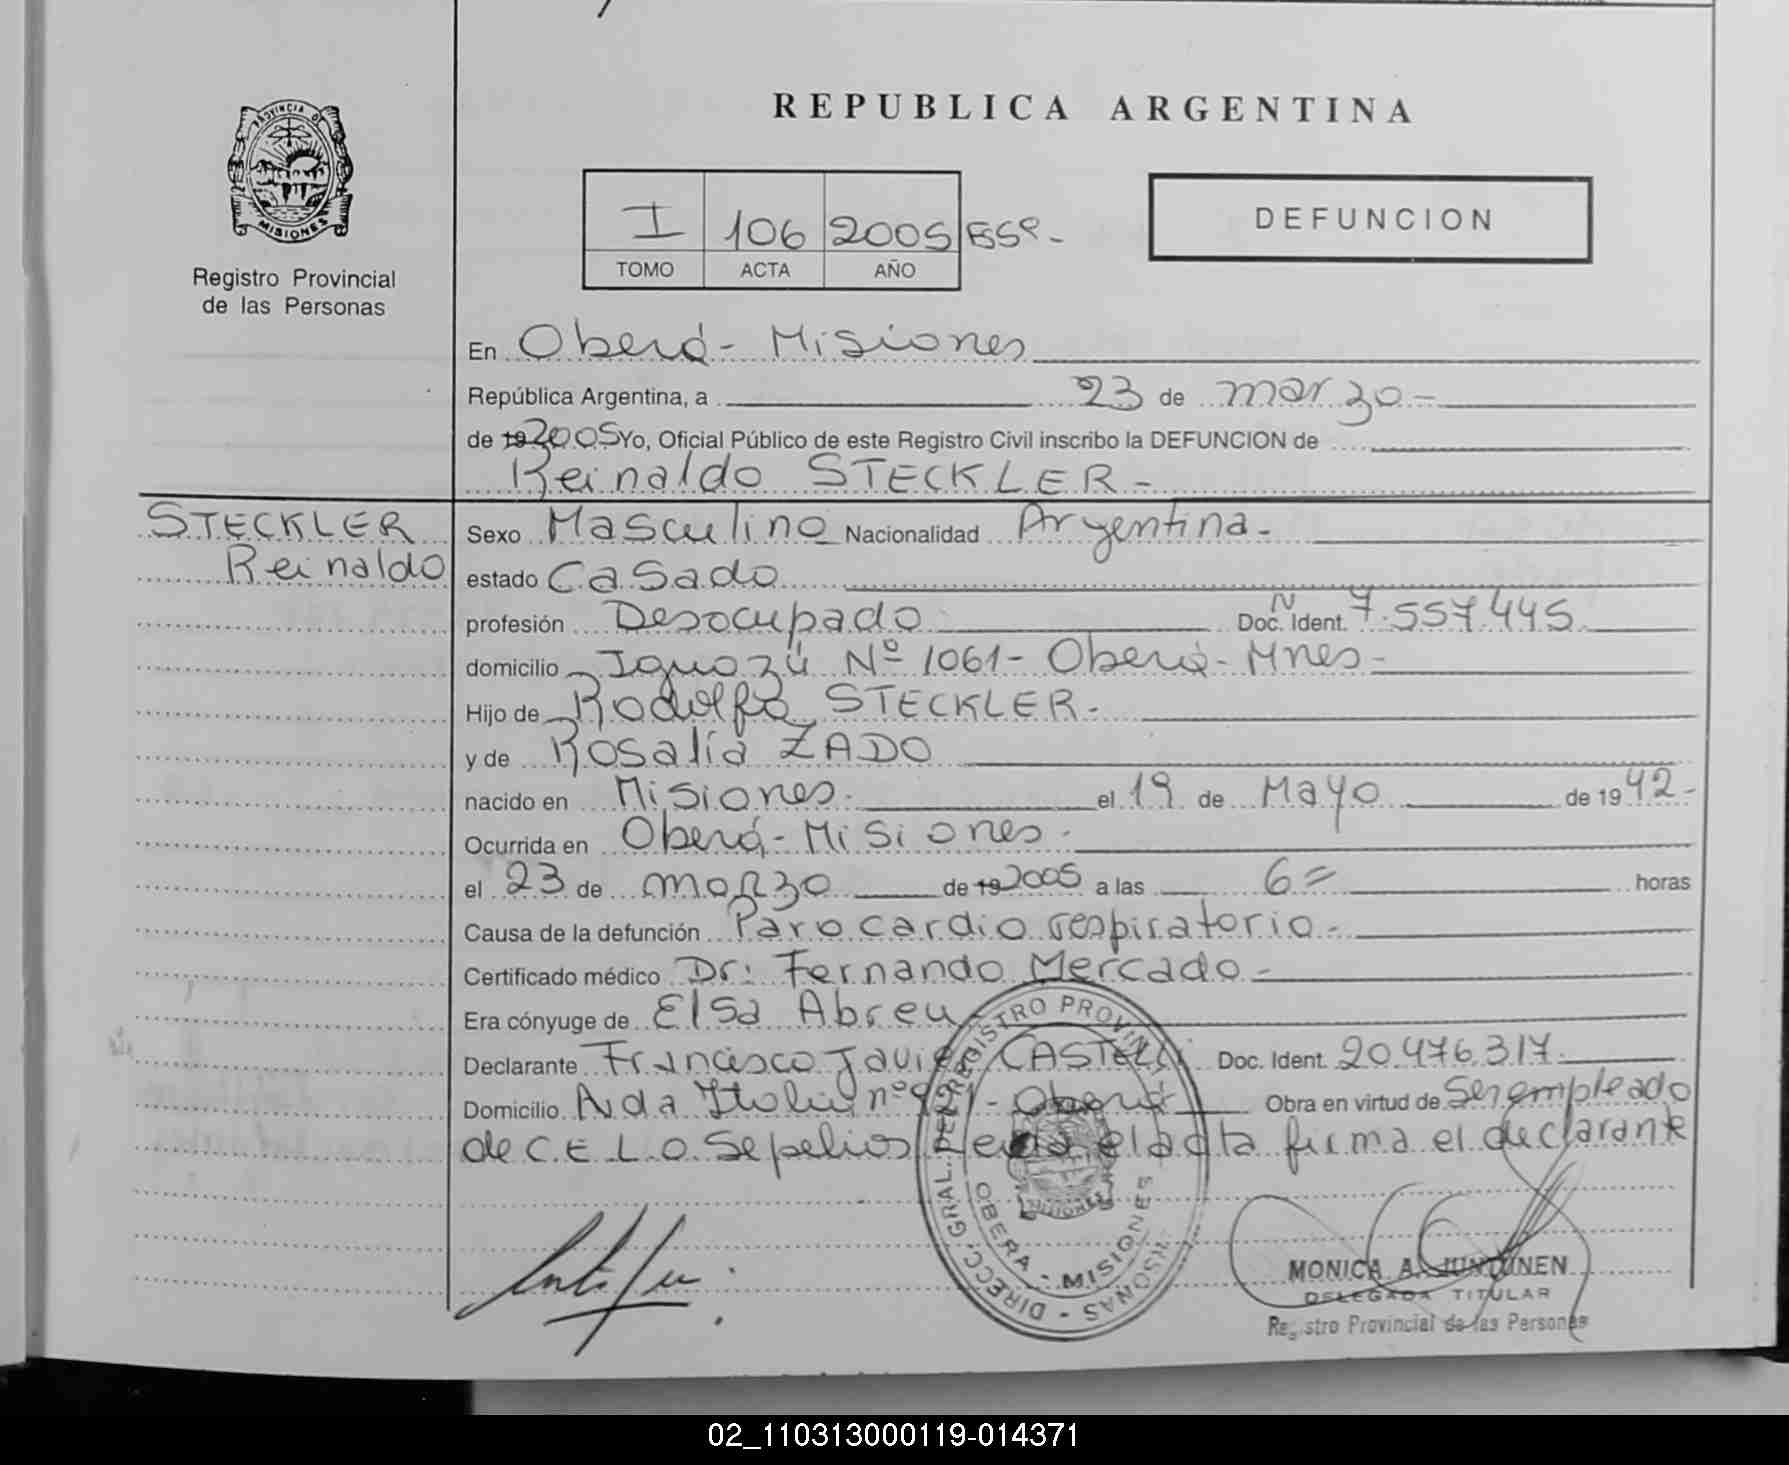 REPUBLICA ARGENTINA
PROVINCIA DE
MISIONES
Registro Provincial
de las Personas
I 106 2005
TOMO ACTA AÑO
DEFUNCION
En Oberá - Misiones
República Argentina, a 23 de marzo -
de 19 2005 Yo, Oficial Público de este Registro Civil inscribo la DEFUNCION de
Reinaldo STECKLER -
STECKLER
Reinaldo
Sexo Masculino Nacionalidad Argentina -
estado Casado
profesión Desocupado Doc. Ident. 7.557.445
domicilio Iguazú Nº 1061 - Oberá - Mnes -
Hijo de Rodolfo STECKLER -
y de Rosalía ZADO
nacido en Misiones - el 19 de Mayo de 1942 -
Ocurrida en Oberá - Misiones -
el 23 de marzo de 19 2005 a las 6 = horas
Causa de la defunción Paro cardio respiratorio -
Certificado médico Dr: Fernando Mercado -
Era cónyuge de Elsa Abreu
Declarante Francisco Javier CASTELLI Doc. Ident. 20.476.317
Domicilio Avda Italia nº - Oberá Obra en virtud de Ser empleado
de C.E.L.O. Sepelios Leida el acta firma el declarante
DIRECC. GRAL. DE REGISTRO PROVINCIAL PERSONAS
OBERA - MISIONES
MONICA A. JUNTUNEN
DELEGADA TITULAR
Registro Provincial de las Personas
02_110313000119-014371